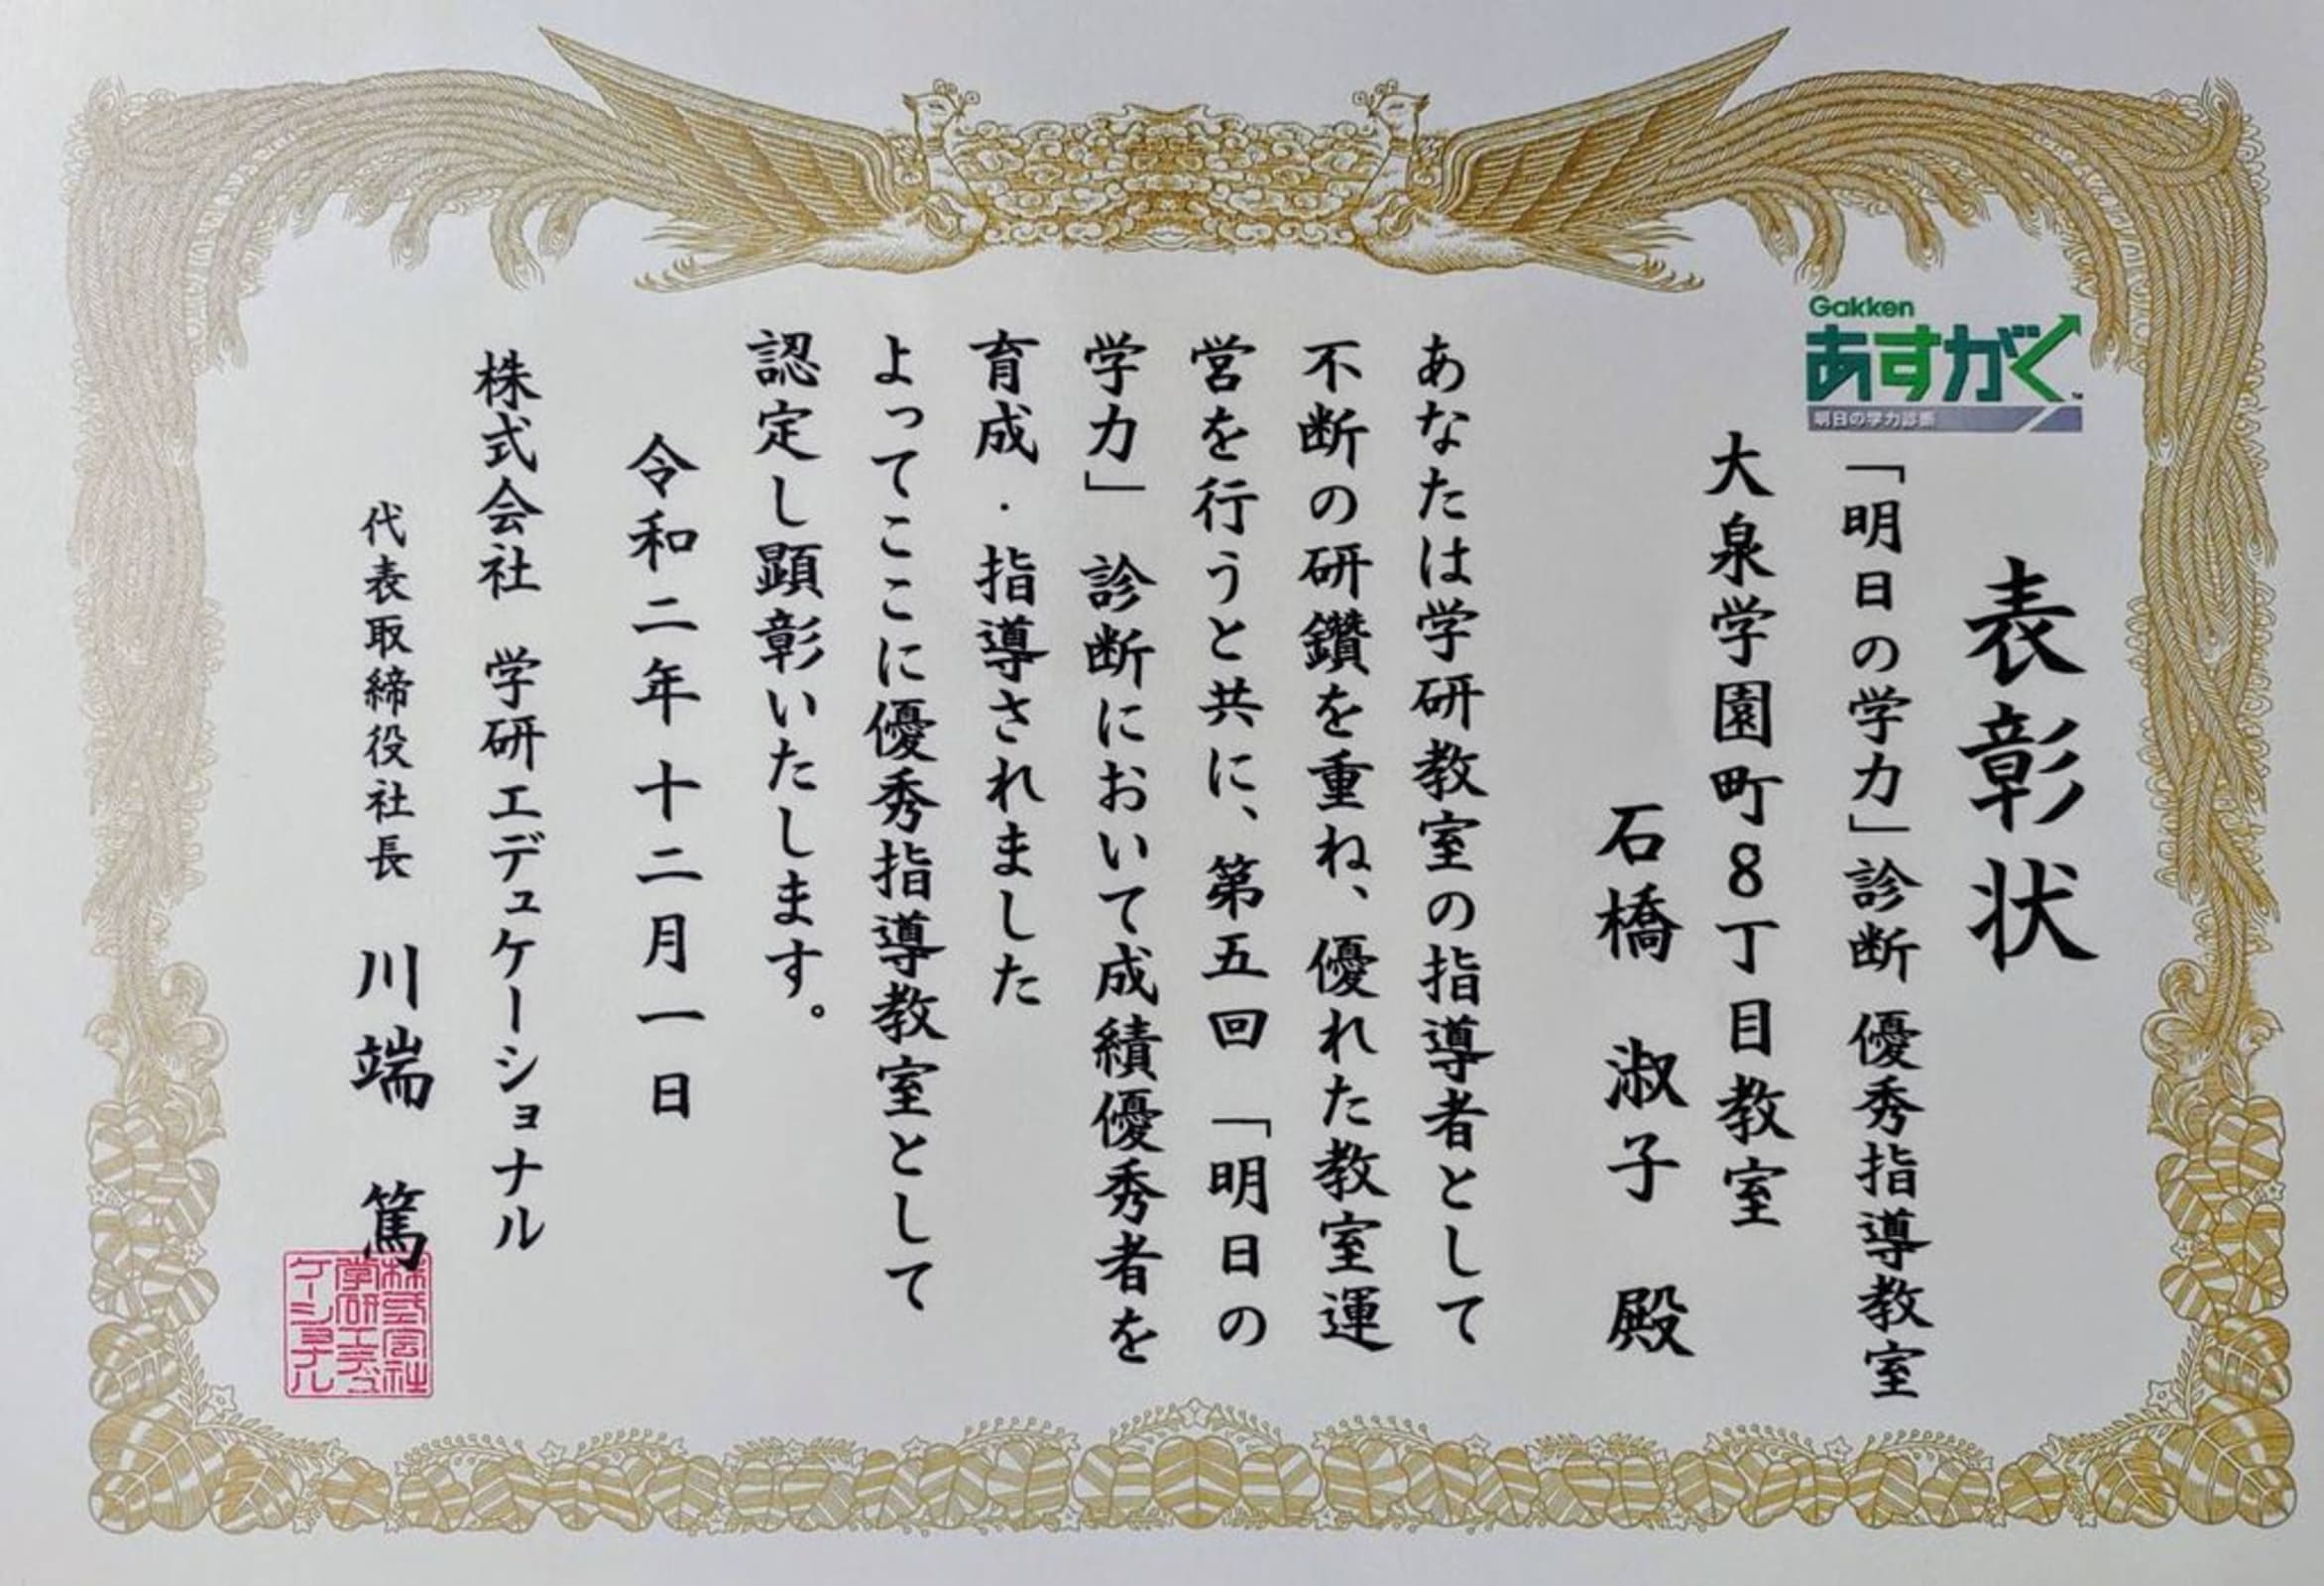 表彰状
Gakken
あすがく
明日の学力診断
「明日の学力」診断 優秀指導教室
大泉学園町8丁目教室
石橋 淑子 殿
あなたは学研教室の指導者として
不断の研鑽を重ね、優れた教室運
営を行うと共に、第五回「明日の
学力」診断において成績優秀者を
育成・指導されました
よってここに優秀指導教室として
認定し顕彰いたします。
令和二年十二月一日
株式会社 学研エデュケーショナル
代表取締役社長 川端 篤
株式会社
学研エデュ
ケーショナル